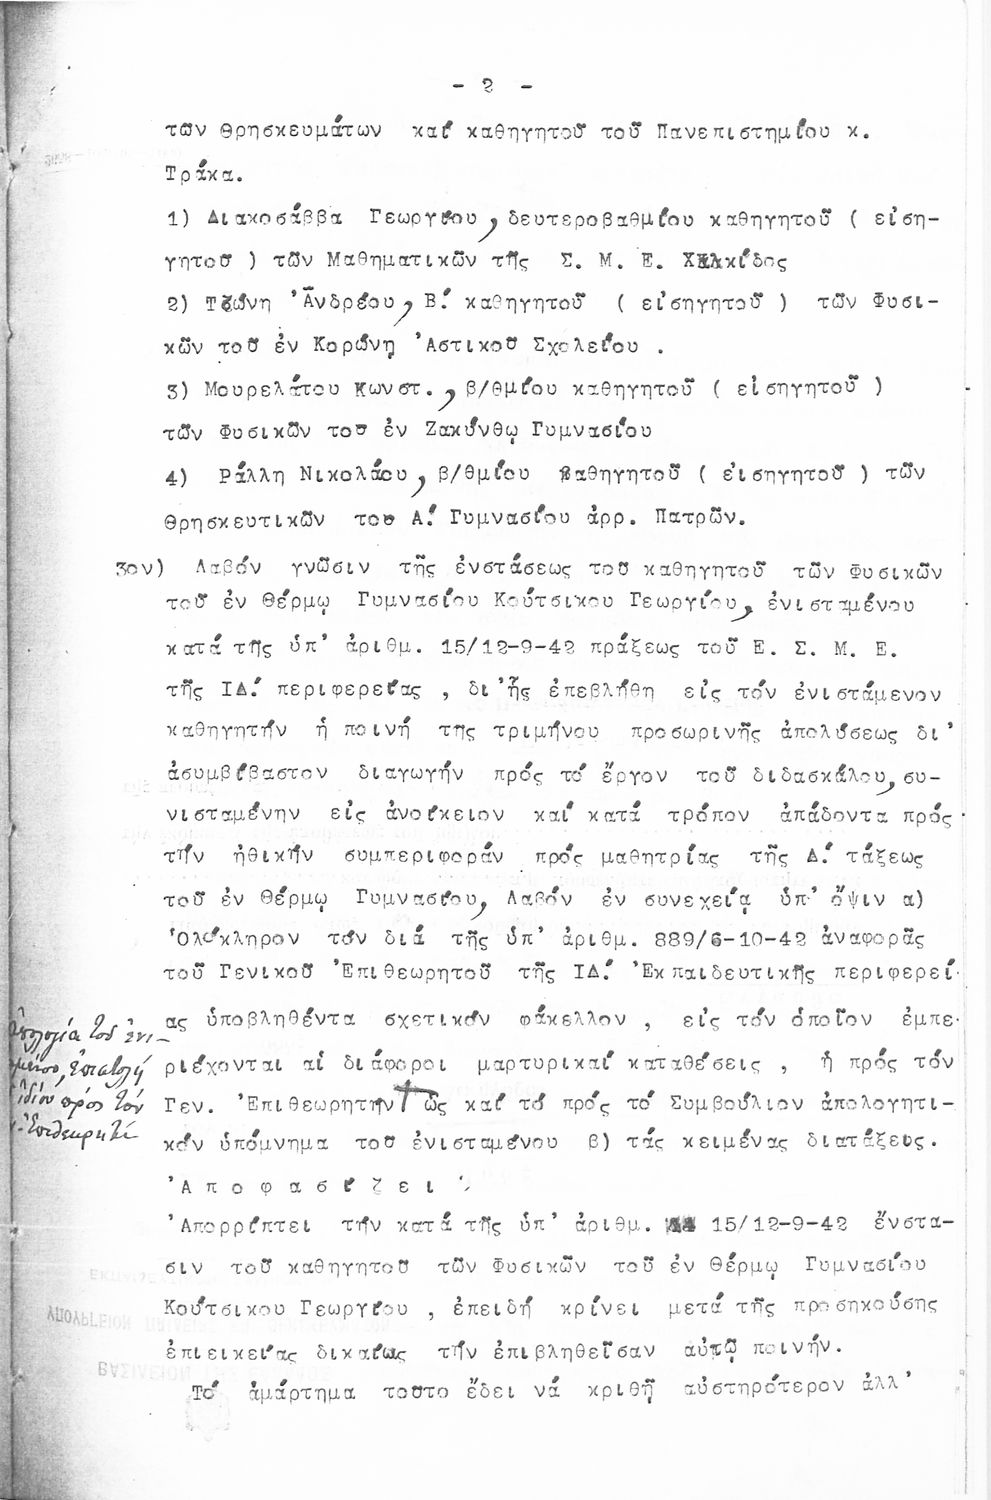 - 2 -
τῶν Θρησκευμάτων καί καθηγητοῦ τοῦ Πανεπιστημίου κ.
Τράκα.
1) Διακοσάββα Γεωργίου, δευτεροβαθμίου καθηγητοῦ ( εἰση-
γητοῦ ) τῶν Μαθηματικῶν τῆς Σ. Μ. Ε. Χαλκίδος
2) Τζώνη Ἀνδρέου, Β.΄ καθηγητοῦ ( εἰσηγητοῦ ) τῶν Φυσι-
κῶν τοῦ ἐν Κορώνῃ Ἀστικοῦ Σχολείου .
3) Μουρελάτου Κωνστ., β/θμίου καθηγητοῦ ( εἰσηγητοῦ )
τῶν Φυσικῶν τοῦ ἐν Ζακύνθῳ Γυμνασίου
4) Ράλλη Νικολάου, β/θμίου καθηγητοῦ ( εἰσηγητοῦ ) τῶν
Θρησκευτικῶν τοῦ Α.΄ Γυμνασίου ἀρρ. Πατρῶν.
3ον) Λαβόν γνῶσιν τῆς ἐνστάσεως τοῦ καθηγητοῦ τῶν Φυσικῶν
τοῦ ἐν Θέρμῳ Γυμνασίου Κούτσικου Γεωργίου, ἐνισταμένου
κατά τῆς ὑπ' ἀριθμ. 15/12-9-42 πράξεως τοῦ Ε. Σ. Μ. Ε.
τῆς ΙΔ.΄ περιφερείας , δι'ἧς ἐπεβλήθη εἰς τόν ἐνιστάμενον
καθηγητήν ἡ ποινή της τριμήνου προσωρινῆς ἀπολύσεως δι'
ἀσυμβίβαστον διαγωγήν πρός τό ἔργον τοῦ διδασκάλου, συ-
νισταμένην εἰς ἀνοίκειον καί κατά τρόπον ἀπάδοντα πρός
τήν ἠθικήν συμπεριφοράν πρός μαθητρίας τῆς Δ.΄ τάξεως
τοῦ ἐν Θέρμῳ Γυμνασίου, Λαβόν ἐν συνεχείᾳ ὑπ' ὄψιν α)
Ὁλόκληρον τόν διά τῆς ὑπ' ἀριθμ. 889/6-10-42 ἀναφορᾶς
τοῦ Γενικοῦ Ἐπιθεωρητοῦ τῆς ΙΔ.΄ Ἐκπαιδευτικῆς περιφερεί-
ας ὑποβληθέντα σχετικόν φάκελλον , εἰς τόν ὁποῖον ἐμπε-
ριέχονται αἱ διάφοροι μαρτυρικαί καταθέσεις , ἡ πρός τόν
Γεν. Ἐπιθεωρητήν ὡς καί τό πρός τό Συμβούλιον ἀπολογητι-
κόν ὑπόμνημα τοῦ ἐνισταμένου β) τάς κειμένας διατάξεις.
ἀπολογία τοῦ ἐνι-
ἐπιστολή
ἰδίου πρός τόν
Ἐπιθεωρητή
Ἀ π ο φ α σ ί ζ ε ι
Ἀπορρίπτει τήν κατά τῆς ὑπ' ἀριθμ. 15/12-9-42 ἔνστα-
σιν τοῦ καθηγητοῦ τῶν Φυσικῶν τοῦ ἐν Θέρμῳ Γυμνασίου
Κούτσικου Γεωργίου , ἐπειδή κρίνει μετά τῆς προσηκούσης
ἐπιεικείας δικαίως τήν ἐπιβληθεῖσαν αὐτῷ ποινήν.
Τό ἁμάρτημα τοῦτο ἔδει νά κριθῇ αὐστηρότερον ἀλλ'